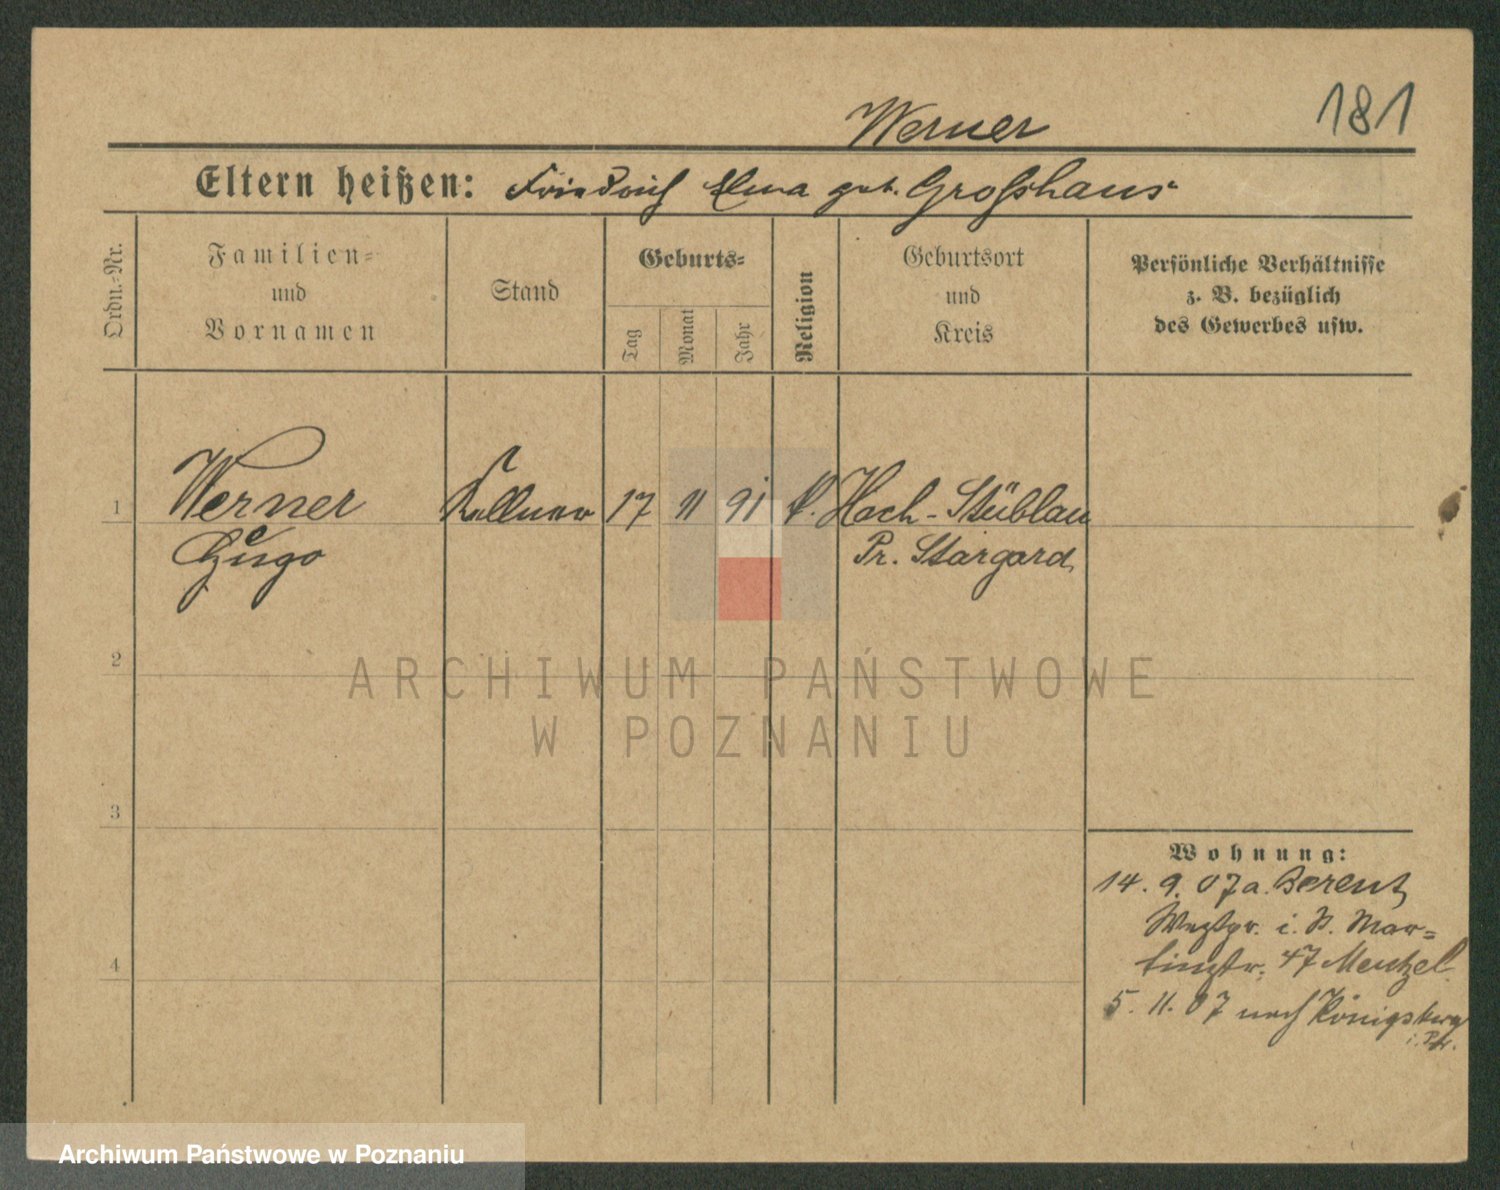 181
Werner
Eltern heißen: Friedrich Alma geb. Grosshaus
Ordn.-Nr.
Familien-
und
Vornamen
Stand
Geburts-
Tag
Monat
Jahr
Religion
Geburtsort
und
Kreis
Persönliche Verhältnisse
z. B. bezüglich
des Gewerbes usw.
1 Werner Kellner 17 11 91 k. Hoch-Stüblau
Hugo Pr. Stargard
2
3
4
Wohnung:
14. 9. 07 a. Berent
Westpr. i. P. Mar-
tinstr. 47 Mentzel
5. 11. 07 nach Königsberg
i. Pr.
ARCHIWUM PAŃSTWOWE
W POZNANIU
Archiwum Państwowe w Poznaniu